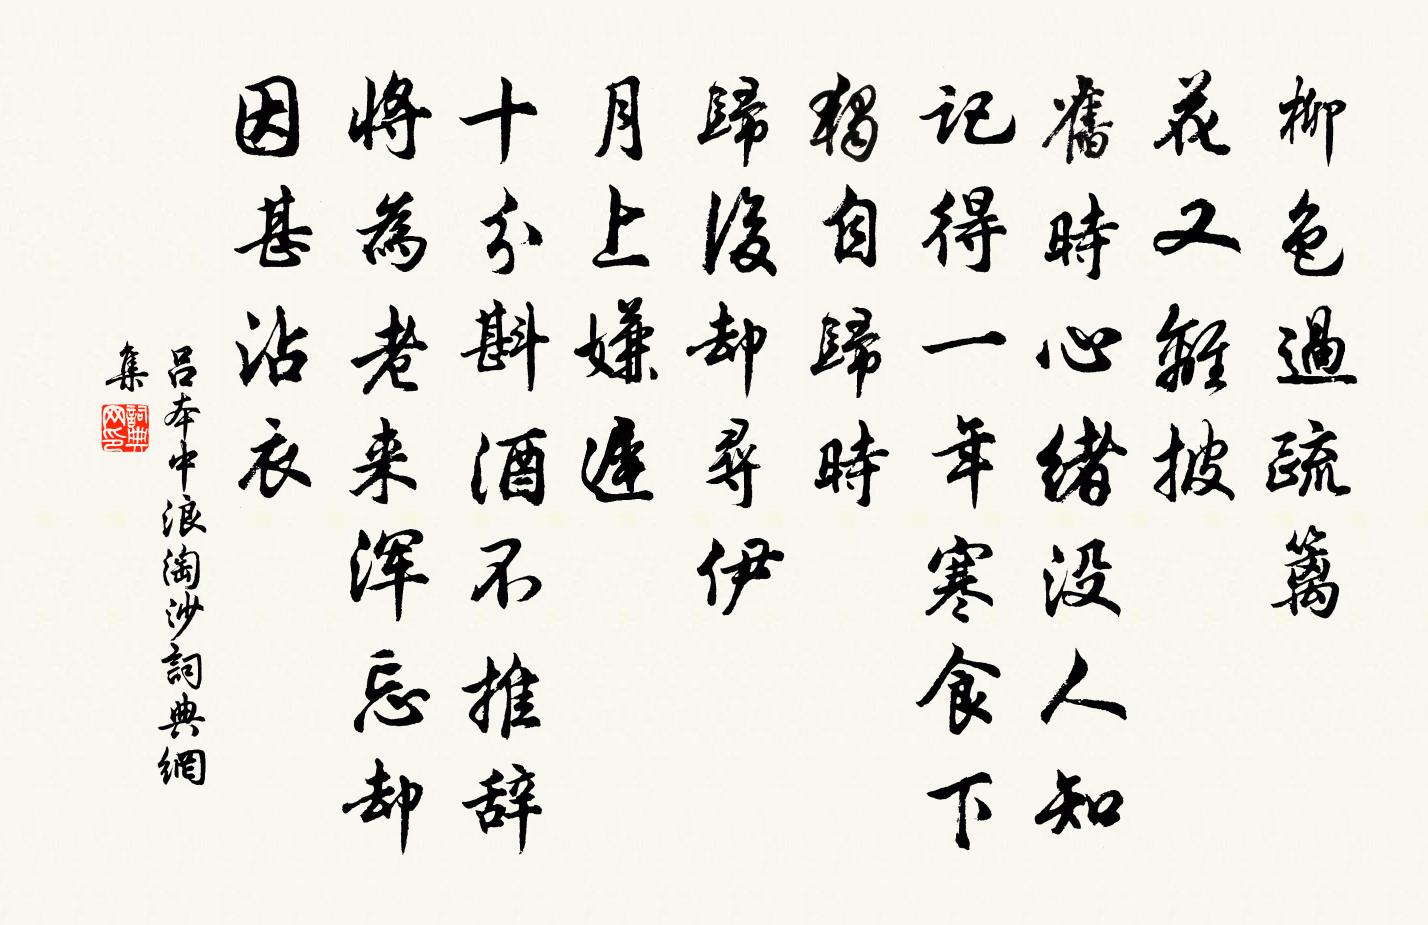 柳色過疏籬
花又離披
舊時心緒没人知
記得一年寒食下
獨自歸時
歸後却尋伊
月上嫌遲
十分斟酒不推辞
將為老来渾忘却
因甚沾衣
吕本中浪淘沙詞典網
集
詞典网印